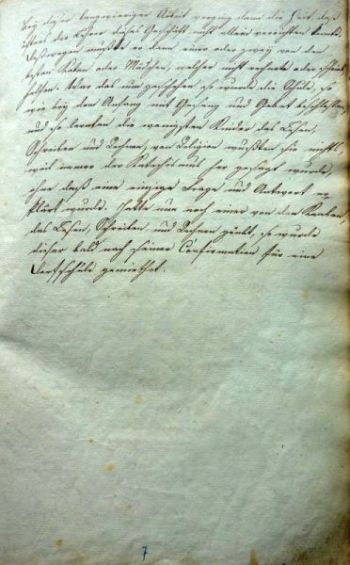 Bey dieser langweiligen Arbeit verging dann die Zeit, daß
öfters der Lehrer dieses Geschäft nicht allein verrichten konnte.
Deßwegen mußte er dann einen oder zwey von den
besten Knaben oder Mädchen, welcher nicht rechnete oder schrieb
helfen. War das nun geschehen so wurde die Schule, so
wie bey dem Anfang mit Gesang und Gebet beschlossen,
und so lernten die wenigsten Kinder das Lesen,
Schreiben und Rechnen, von Religion wußten sie nichts,
weil immer der Katechismus her gesagt wurde,
ohne daß eine einzige Frage und Antwort er-
klärt wurde. Hatte nun noch einer von den Knaben,
das Lesen, Schreiben und Rechnen geübt, so wurde
dieser bald nach seiner Confirmation für eine
Dorfschule gemiethet.
7